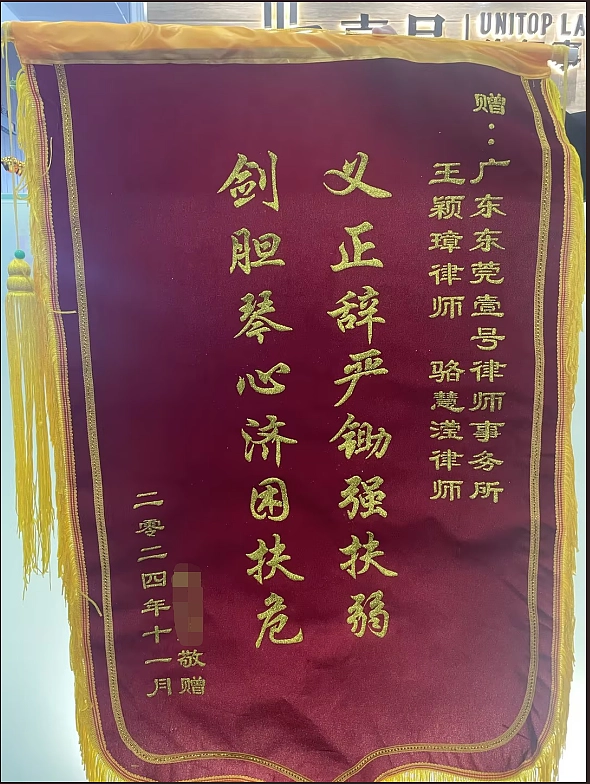 UNITOP LA
赠：
广东东莞壹号律师事务所
王颖璋律师 骆慧滢律师
义正辞严锄强扶弱
剑胆琴心济困扶危
敬赠
二零二四年十一月